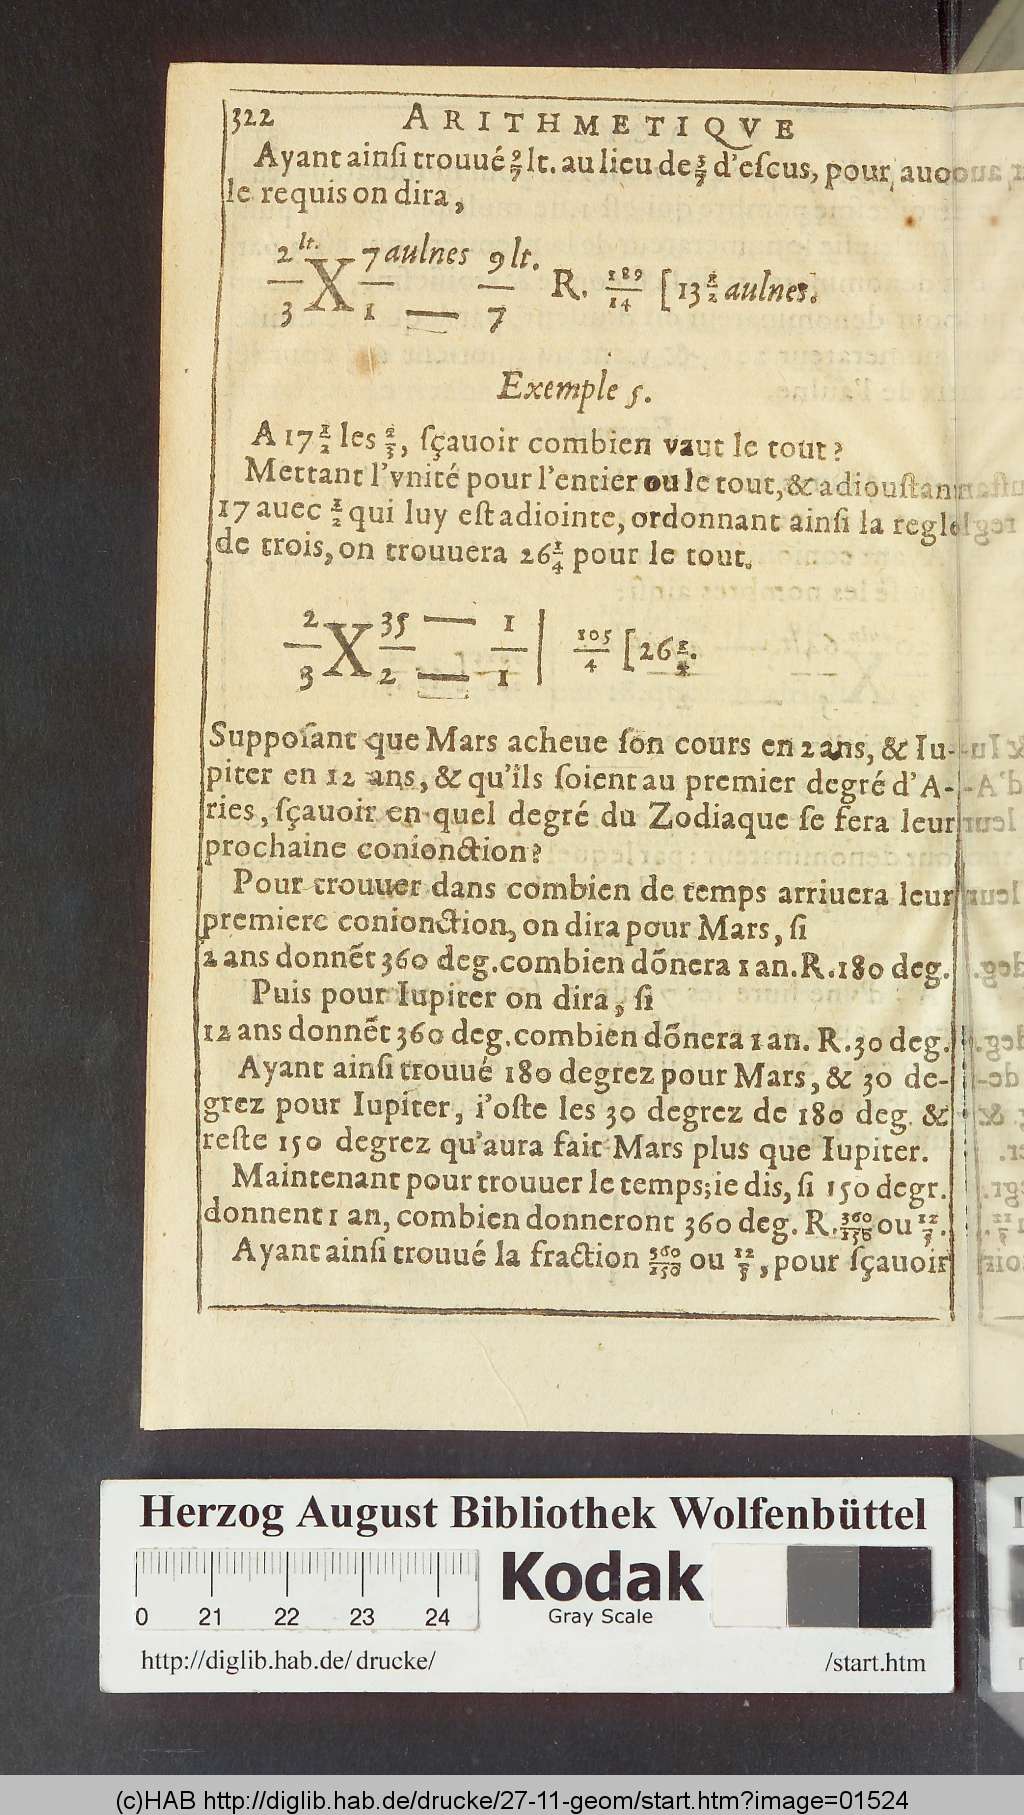 322 ARITHMETIQVE
Ayant ainſi trouué 9/7 lt. au lieu de 3/7 d'eſcus, pour auo
le requis on dira,
2 lt. 7 aulnes 9 lt.
— X — — R. 189/14 [13 1/2 aulnes.
3 1 — 7
Exemple 5.
A 17 1/2 les 2/3, ſçauoir combien vaut le tout?
Mettant l'vnité pour l'entier ou le tout, & adiouſtan
17 auec 1/2 qui luy eſt adiointe, ordonnant ainſi la regle
de trois, on trouuera 26 1/4 pour le tout.
2 35 — 1
— X — — | 105/4 [26 1/4.
3 2 — 1
Suppoſant que Mars acheue ſon cours en 2 ans, & Iu-
piter en 12 ans, & qu'ils ſoient au premier degré d'A-
ries, ſçauoir en quel degré du Zodiaque ſe fera leur
prochaine conionction?
Pour trouuer dans combien de temps arriuera leur
premiere conionction, on dira pour Mars, ſi
2 ans donnẽt 360 deg. combien dõnera 1 an. R. 180 deg.
Puis pour Iupiter on dira, ſi
12 ans donnẽt 360 deg. combien dõnera 1 an. R. 30 deg.
Ayant ainſi trouué 180 degrez pour Mars, & 30 de-
grez pour Iupiter, i'oſte les 30 degrez de 180 deg. &
reſte 150 degrez qu'aura fait Mars plus que Iupiter.
Maintenant pour trouuer le temps; ie dis, ſi 150 degr.
donnent 1 an, combien donneront 360 deg. R. 360/150 ou 12/5.
Ayant ainſi trouué la fraction 360/150 ou 12/5, pour ſçauoir
Herzog August Bibliothek Wolfenbüttel
0 21 22 23 24
Kodak
Gray Scale
http://diglib.hab.de/ drucke/ /start.htm
(c)HAB http://diglib.hab.de/drucke/27-11-geom/start.htm?image=01524